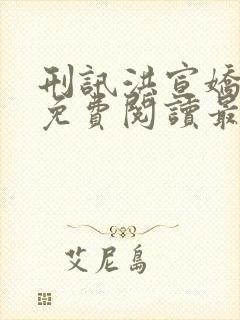 刑訊洪宣嬌
免費閱讀最
艾尼島